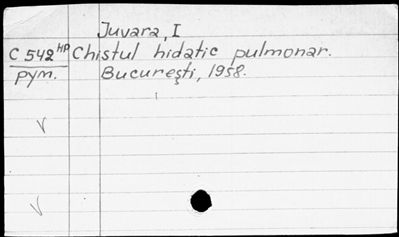 Juvara, I
C 542 HP Chistul hidatic pulmonar.
рум. Bucureşti, 1958.